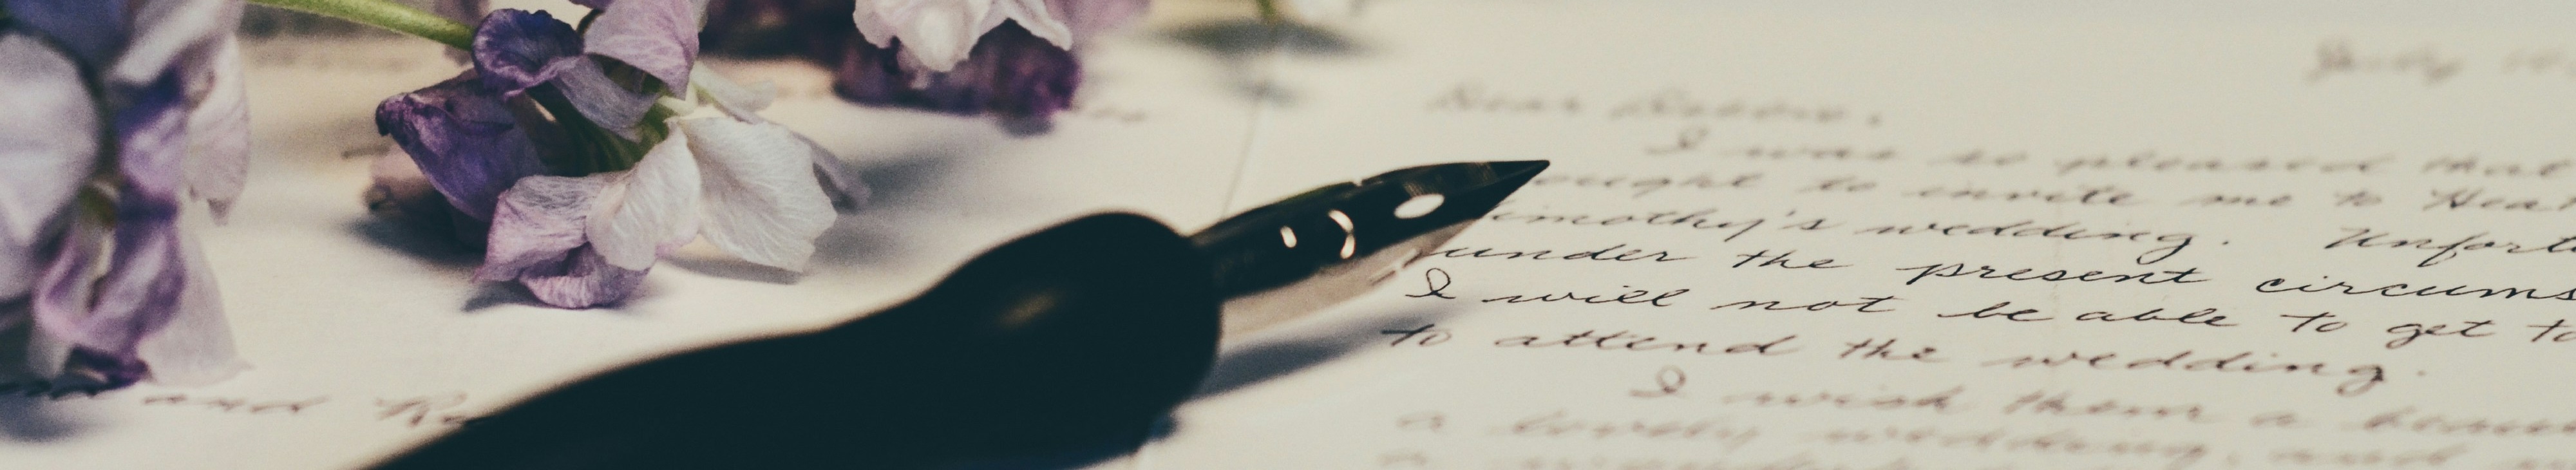 July
Dear
I was so pleased that
ought to invite me to Heat
imothy's wedding. Unfort
under the present circums
I will not be able to get to
to attend the wedding.
I wish them a
a lovely wedding, and
and